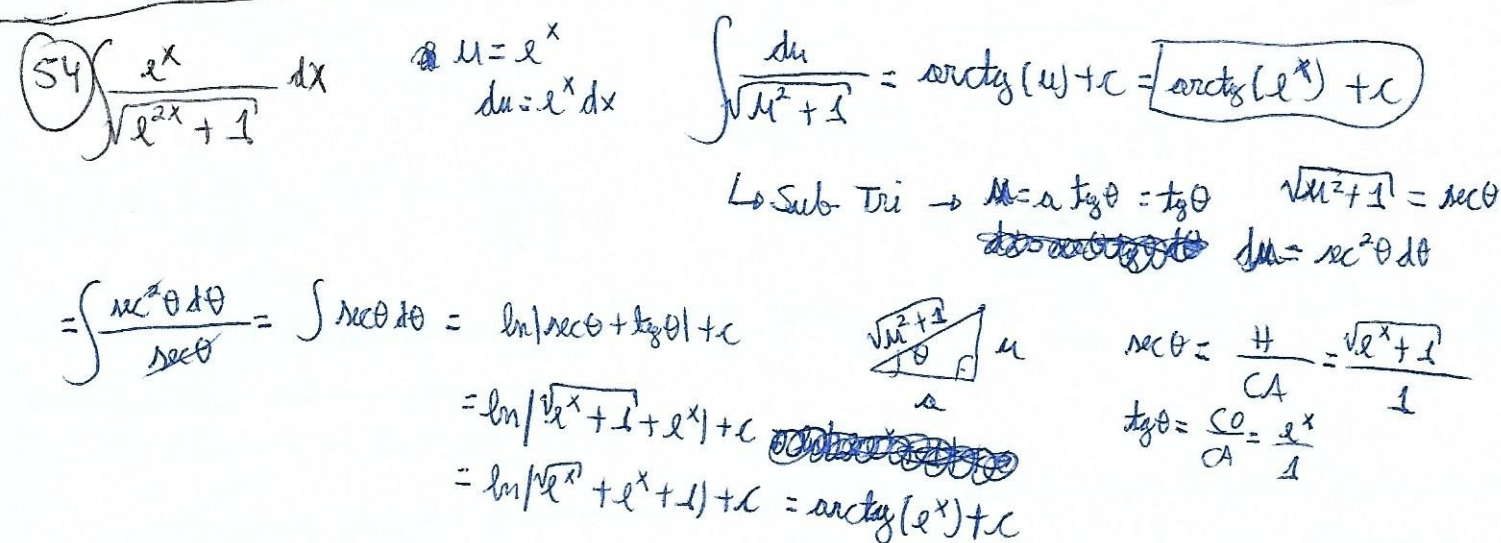 54 ∫ e^x / √(e^(2x) + 1) dx   u = e^x   ∫ du / √(u² + 1) = arctg(u) + c = arctg(e^x) + c
du = e^x dx
↳ Sub Tri → u = a tgθ = tgθ   √(u² + 1) = secθ
du = sec²θ dθ
= ∫ sec²θ dθ / secθ = ∫ secθ dθ = ln|secθ + tgθ| + c   √(u² + 1)   θ   u   a   secθ = H / CA = √(e^x + 1) / 1
= ln|√(e^x + 1) + e^x| + c   tgθ = CO / CA = e^x / 1
= ln|√(e^x) + e^x + 1| + c = arctg(e^x) + c